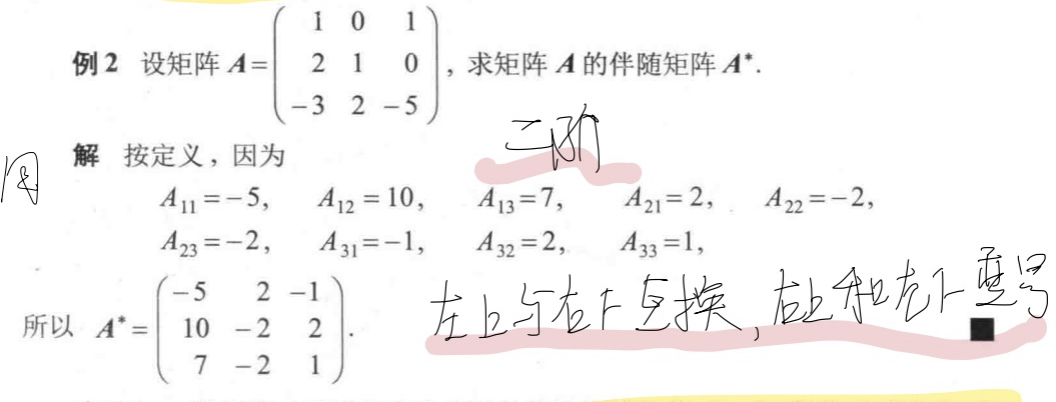 例2 设矩阵 A=(1 0 1; 2 1 0; -3 2 -5), 求矩阵 A 的伴随矩阵 A*.
二阶
解 按定义, 因为
A₁₁=-5, A₁₂=10, A₁₃=7, A₂₁=2, A₂₂=-2,
A₂₃=-2, A₃₁=-1, A₃₂=2, A₃₃=1,
所以 A*=(-5 2 -1; 10 -2 2; 7 -2 1).
左上与右下互换, 右上和左下变号